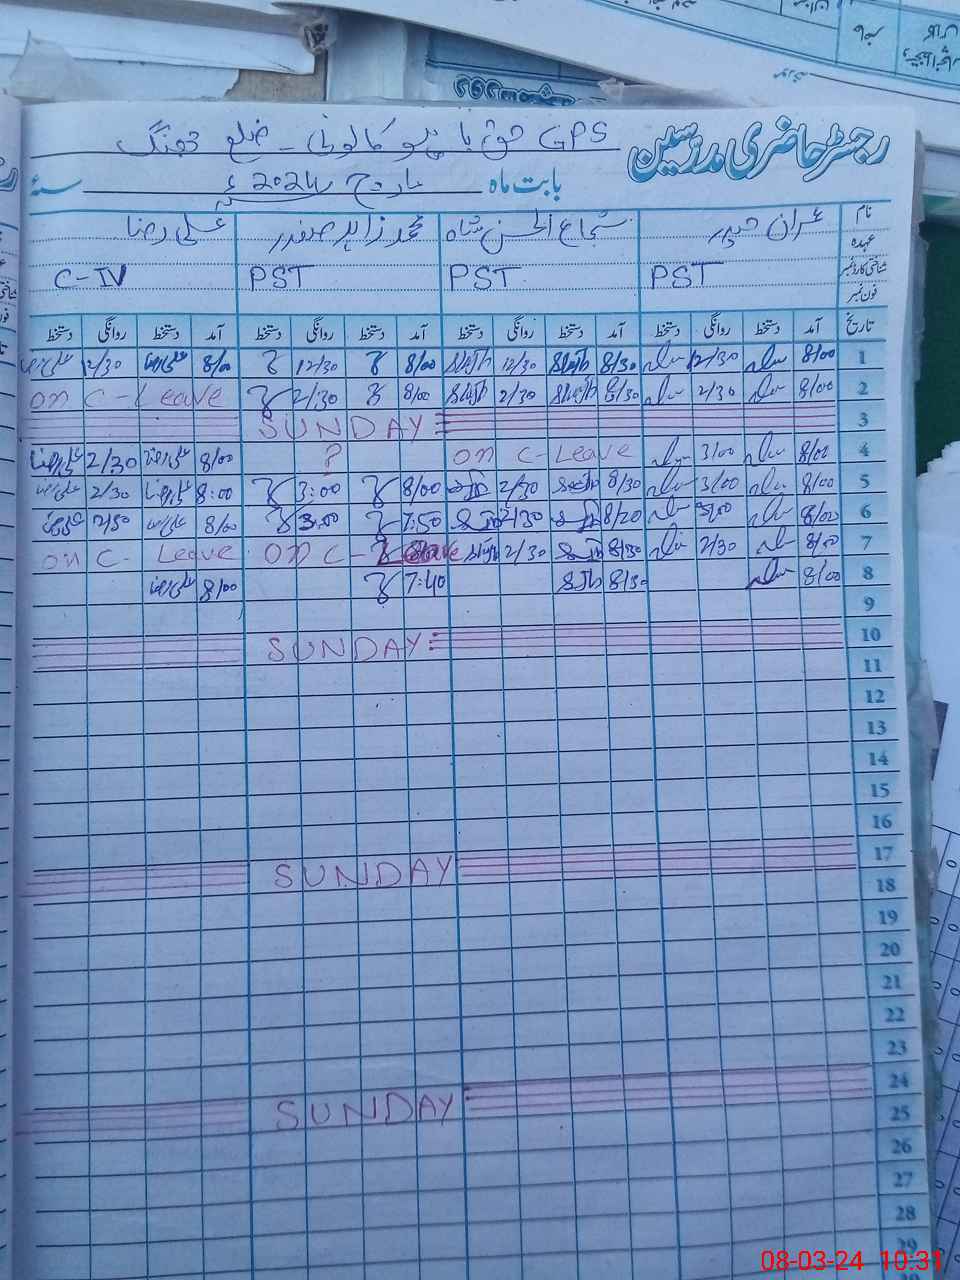 رجسٹر حاضری مدرسین
GPS حق باہو کالونی - ضلع جھنگ
بابت ماہ مارچ 2024ء سنہ
نام عمران حیدر شجاع الحسن شاہ محمد زاہد صفدر علی رضا
عہدہ
شناختی کارڈ نمبر PST PST PST C-IV
فون نمبر
تاریخ آمد دستخط روانگی دستخط آمد دستخط روانگی دستخط آمد دستخط روانگی دستخط آمد دستخط روانگی دستخط
1 8/00 12/30 8/30 12/30 8/00 12/30 8/00 12/30
2 8/00 2/30 8/30 2/30 8/00 2/30 on C-Leave
3 SUNDAY
4 8/00 3/00 on C-Leave ? 8/00 2/30
5 8/00 3/00 8/30 2/30 8/00 3:00 8:00 2/30
6 8/00 3/00 8/20 2/30 7:50 3:00 8/00 2/30
7 8/00 2/30 8/30 2/30 on C-Leave on C-Leave
8 8/00 8/30 7:40 8/00
9
10 SUNDAY
11
12
13
14
15
16
17 SUNDAY
18
19
20
21
22
23
24 SUNDAY
25
26
27
28
29
08-03-24 10:31